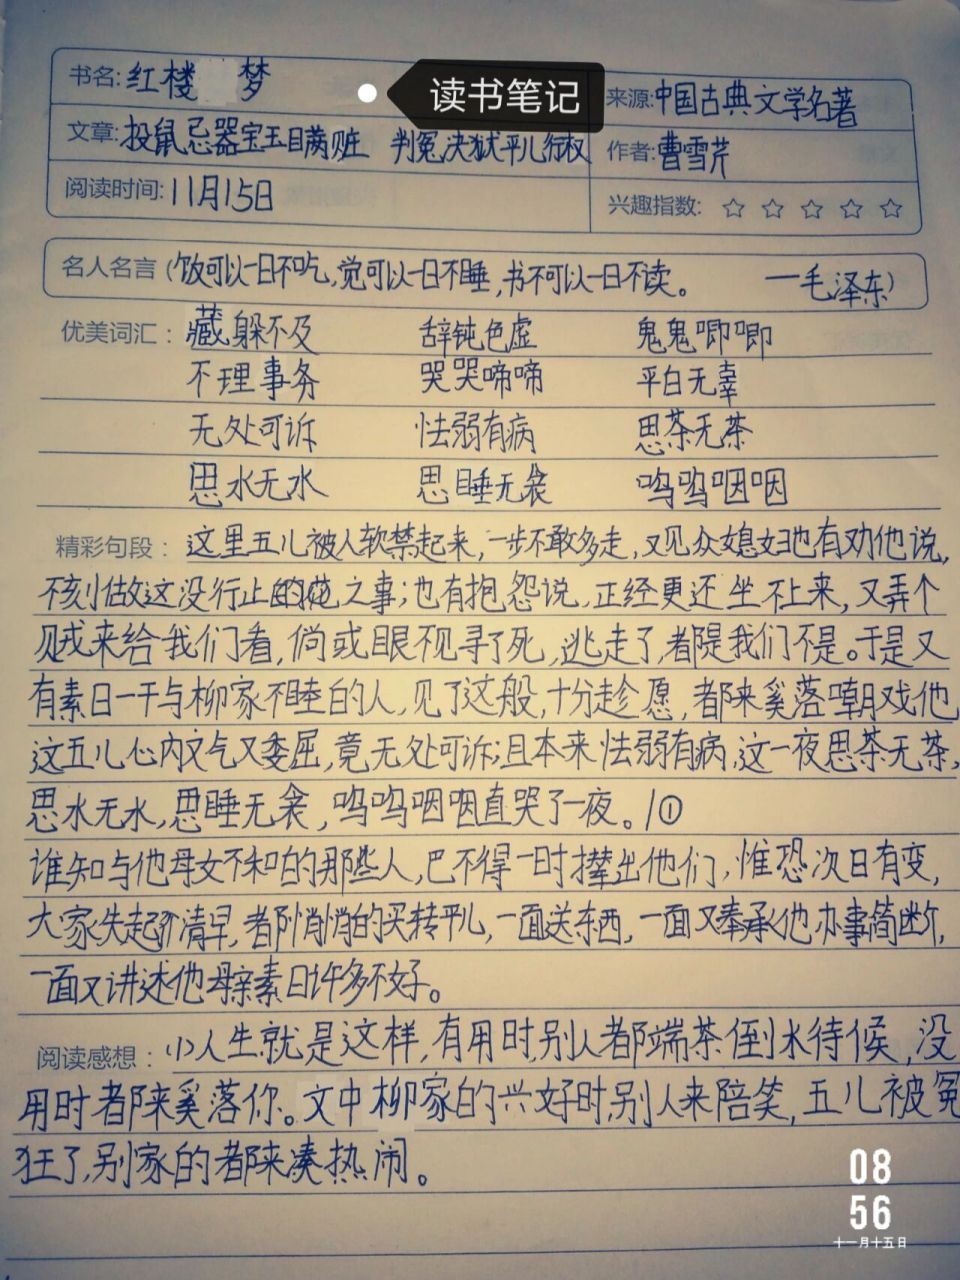 读书笔记
书名:红楼梦
来源:中国古典文学名著
文章:投鼠忌器宝玉瞒赃 判冤决狱平儿行权
作者:曹雪芹
阅读时间:11月15日
兴趣指数: ☆ ☆ ☆ ☆ ☆
名人名言(饭可以一日不吃,觉可以一日不睡,书不可以一日不读。 —毛泽东)
优美词汇: 藏躲不及 辞钝色虚 鬼鬼唧唧
不理事务 哭哭啼啼 平白无辜
无处可诉 怯弱有病 思茶无茶
思水无水 思睡无衾 呜呜咽咽
精彩句段: 这里五儿被人软禁起来,一步不敢多走,又见众媳妇也有劝他说,
不该做这没行止的之事;也有抱怨说,正经更还坐不上来,又弄个
贼来给我们看,倘或眼不见寻了死,逃走了,都是我们不是。于是又
有素日一干与柳家不睦的人,见了这般,十分趁愿,都来奚落嘲戏他
这五儿心内又气又委屈,竟无处可诉;且本来怯弱有病,这一夜思茶无茶,
思水无水,思睡无衾,呜呜咽咽直哭了一夜。/①
谁知与他母女不和的那些人,巴不得一时撵出他们,惟恐次日有变,
大家先起了清早,都悄悄的买转平儿,一面送东西,一面又奉承他办事简断,
一面又讲述他母亲素日许多不好。
阅读感想: 小人生就是这样,有用时别人都端茶倒水待候,没
用时都来奚落你。文中柳家的兴好时,别人来陪笑,五儿被冤
狂了,别家的都来凑热闹。
08
56
十一月十五日